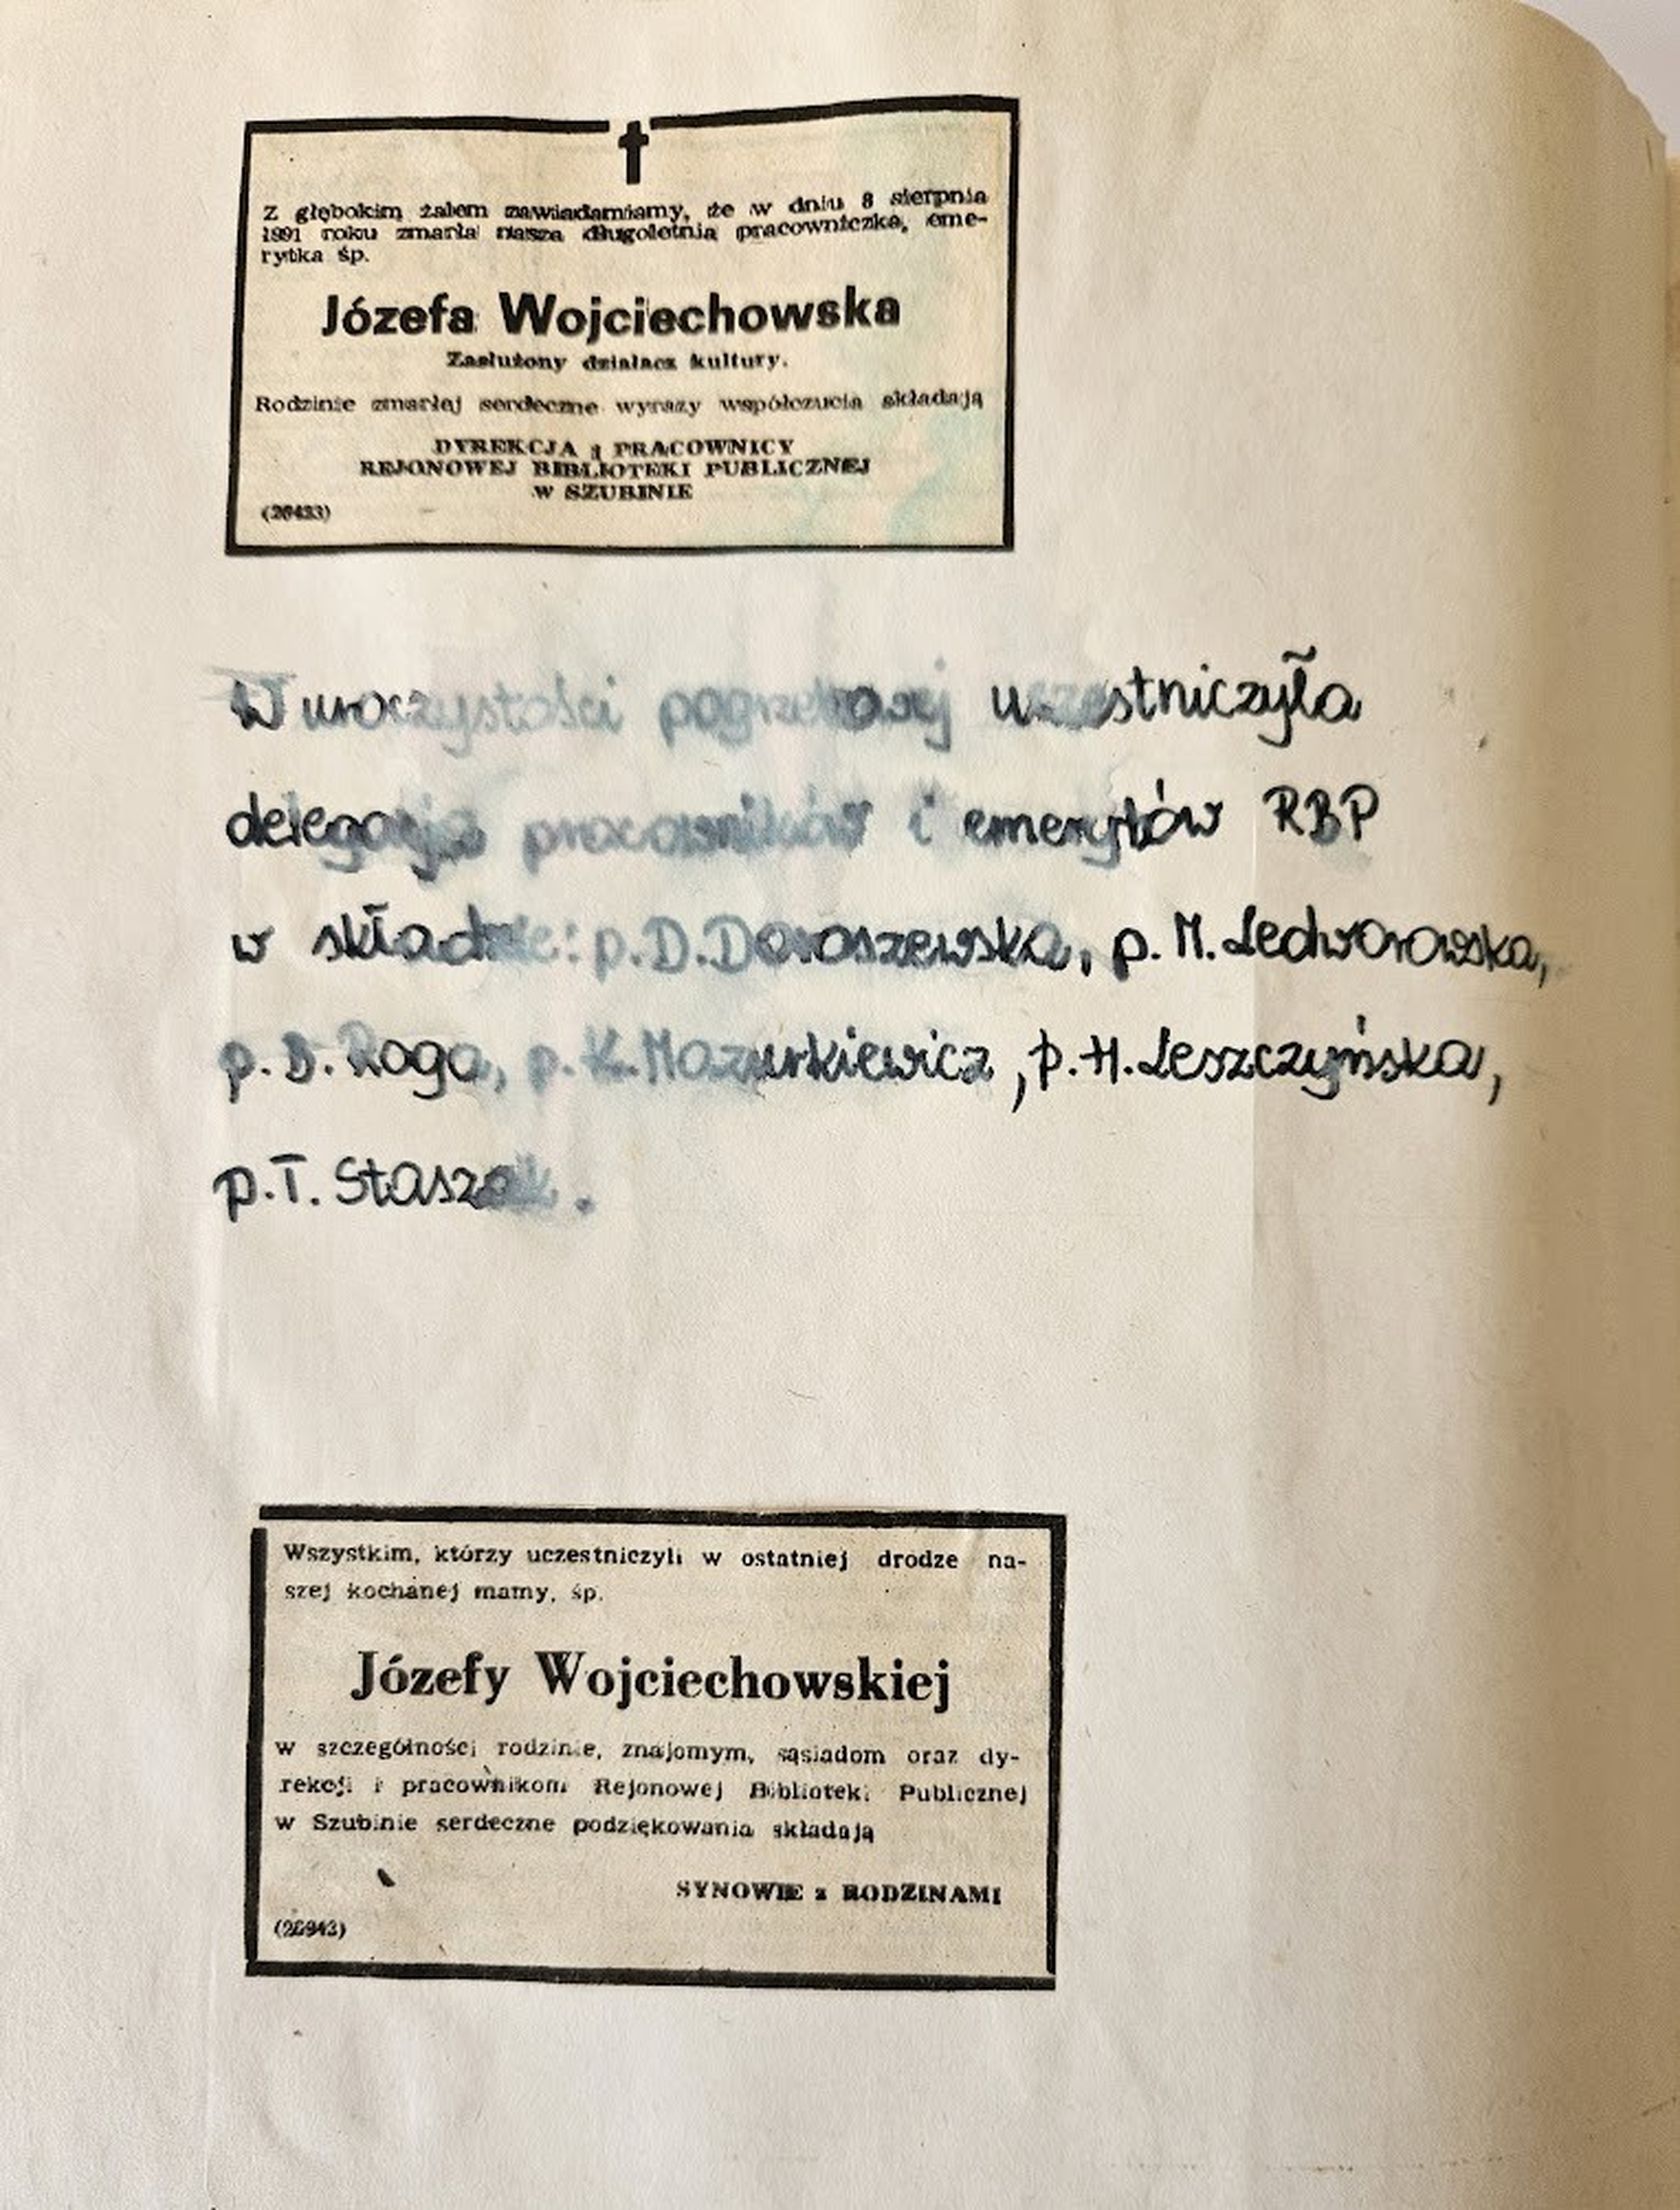 Z głębokim żalem zawiadamiamy, że w dniu 8 sierpnia
1991 roku zmarła nasza długoletnia pracowniczka, eme-
rytka śp.
Józefa Wojciechowska
Zasłużony działacz kultury.
Rodzinie zmarłej serdeczne wyrazy współczucia składają
DYREKCJA i PRACOWNICY
REJONOWEJ BIBLIOTEKI PUBLICZNEJ
w SZUBINIE
(26433)
W uroczystości pogrzebowej uczestniczyła
delegacja pracowników i emerytów RBP
w składzie: p. D. Doroszewska, p. M. Ledworowska,
p. B. Roga, p. K. Mazurkiewicz, p. H. Leszczyńska,
p. T. Staszak.
Wszystkim, którzy uczestniczyli w ostatniej drodze na-
szej kochanej mamy, śp.
Józefy Wojciechowskiej
w szczególności rodzinie, znajomym, sąsiadom oraz dy-
rekcji i pracownikom Rejonowej Biblioteki Publicznej
w Szubinie serdeczne podziękowania składają
SYNOWIE z RODZINAMI
(26943)